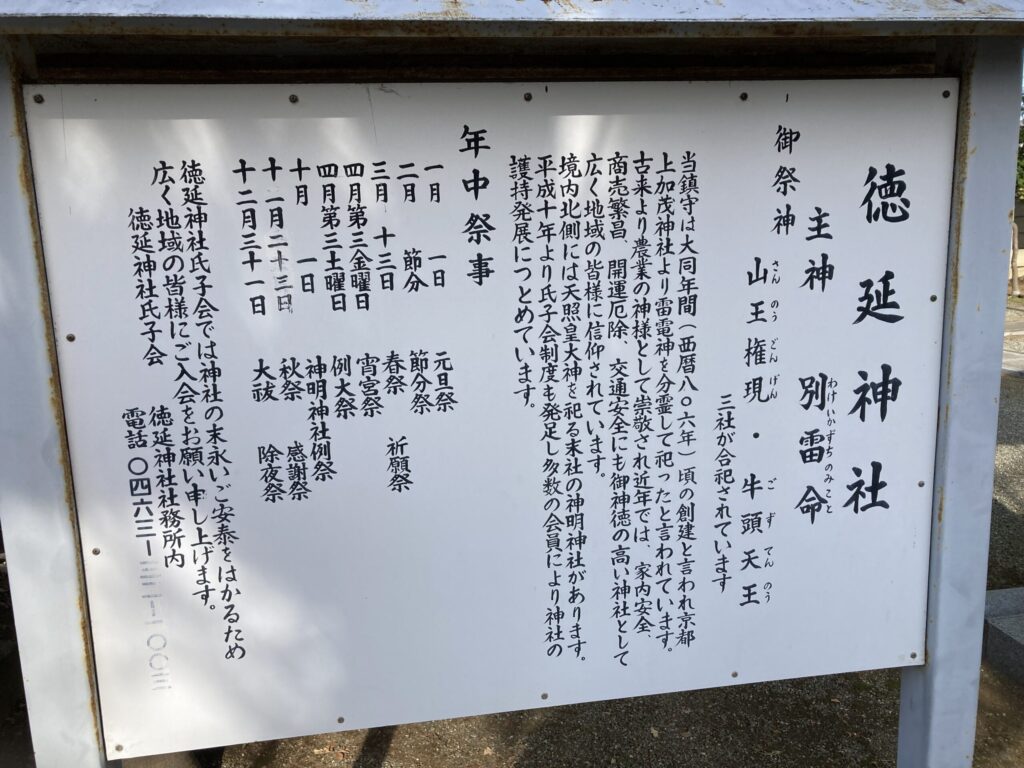 徳延神社
主神 別雷命
わけいかずちのみこと
御祭神 山王権現・牛頭天王
さんのうごんげん ごずてんのう
三社が合祀されています
当鎮守は大同年間(西暦八〇六年)頃の創建と言われ京都
上加茂神社より雷電神を分霊して祀ったと言われています。
古来より農業の神様として崇敬され近年では、家内安全、
商売繁昌、開運厄除、交通安全にも御神徳の高い神社として
広く地域の皆様に信仰されています。
境内北側には天照皇大神を祀る末社の神明神社があります。
平成十年より氏子会制度も発足し多数の会員により神社の
護持発展につとめています。
年中祭事
一月 一日 元旦祭
二月 節分 節分祭
三月 十三日 春祭 祈願祭
四月第三金曜日 宵宮祭
四月第三土曜日 例大祭
十月 一日 神明神社例祭
十一月二十三日 秋祭 感謝祭
十二月三十一日 大祓 除夜祭
徳延神社氏子会では神社の末永いご安泰をはかるため
広く地域の皆様にご入会をお願い申し上げます。
徳延神社氏子会 徳延神社社務所内
電話 〇四六三-